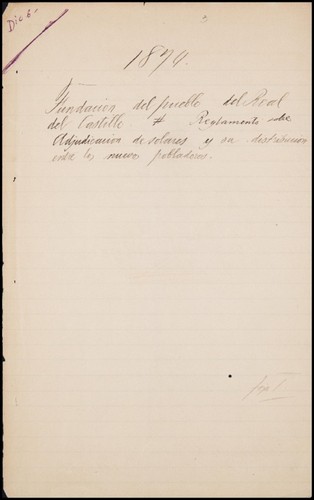 Dic 6-
1874.
Fundacion del pueblo del Real
del Castillo # Reglamento sobe
Adjudicacion de solares y su distribucion
entre los nuevos pobladores.